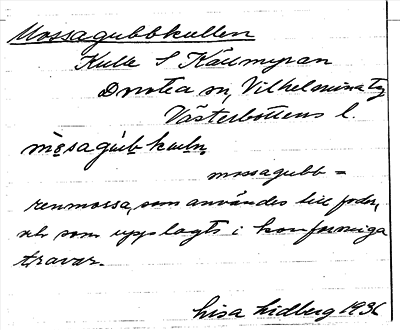 Mossagubbkullen
Kulle S Källmyran
Dorotea sn, Vilhelmina tg
Västerbottens l.
mòsagùbkulņ
mossagubb =
renmossa, som användes till foder,
och som upplagts i konformiga
travar.
Lisa Lidberg 1936